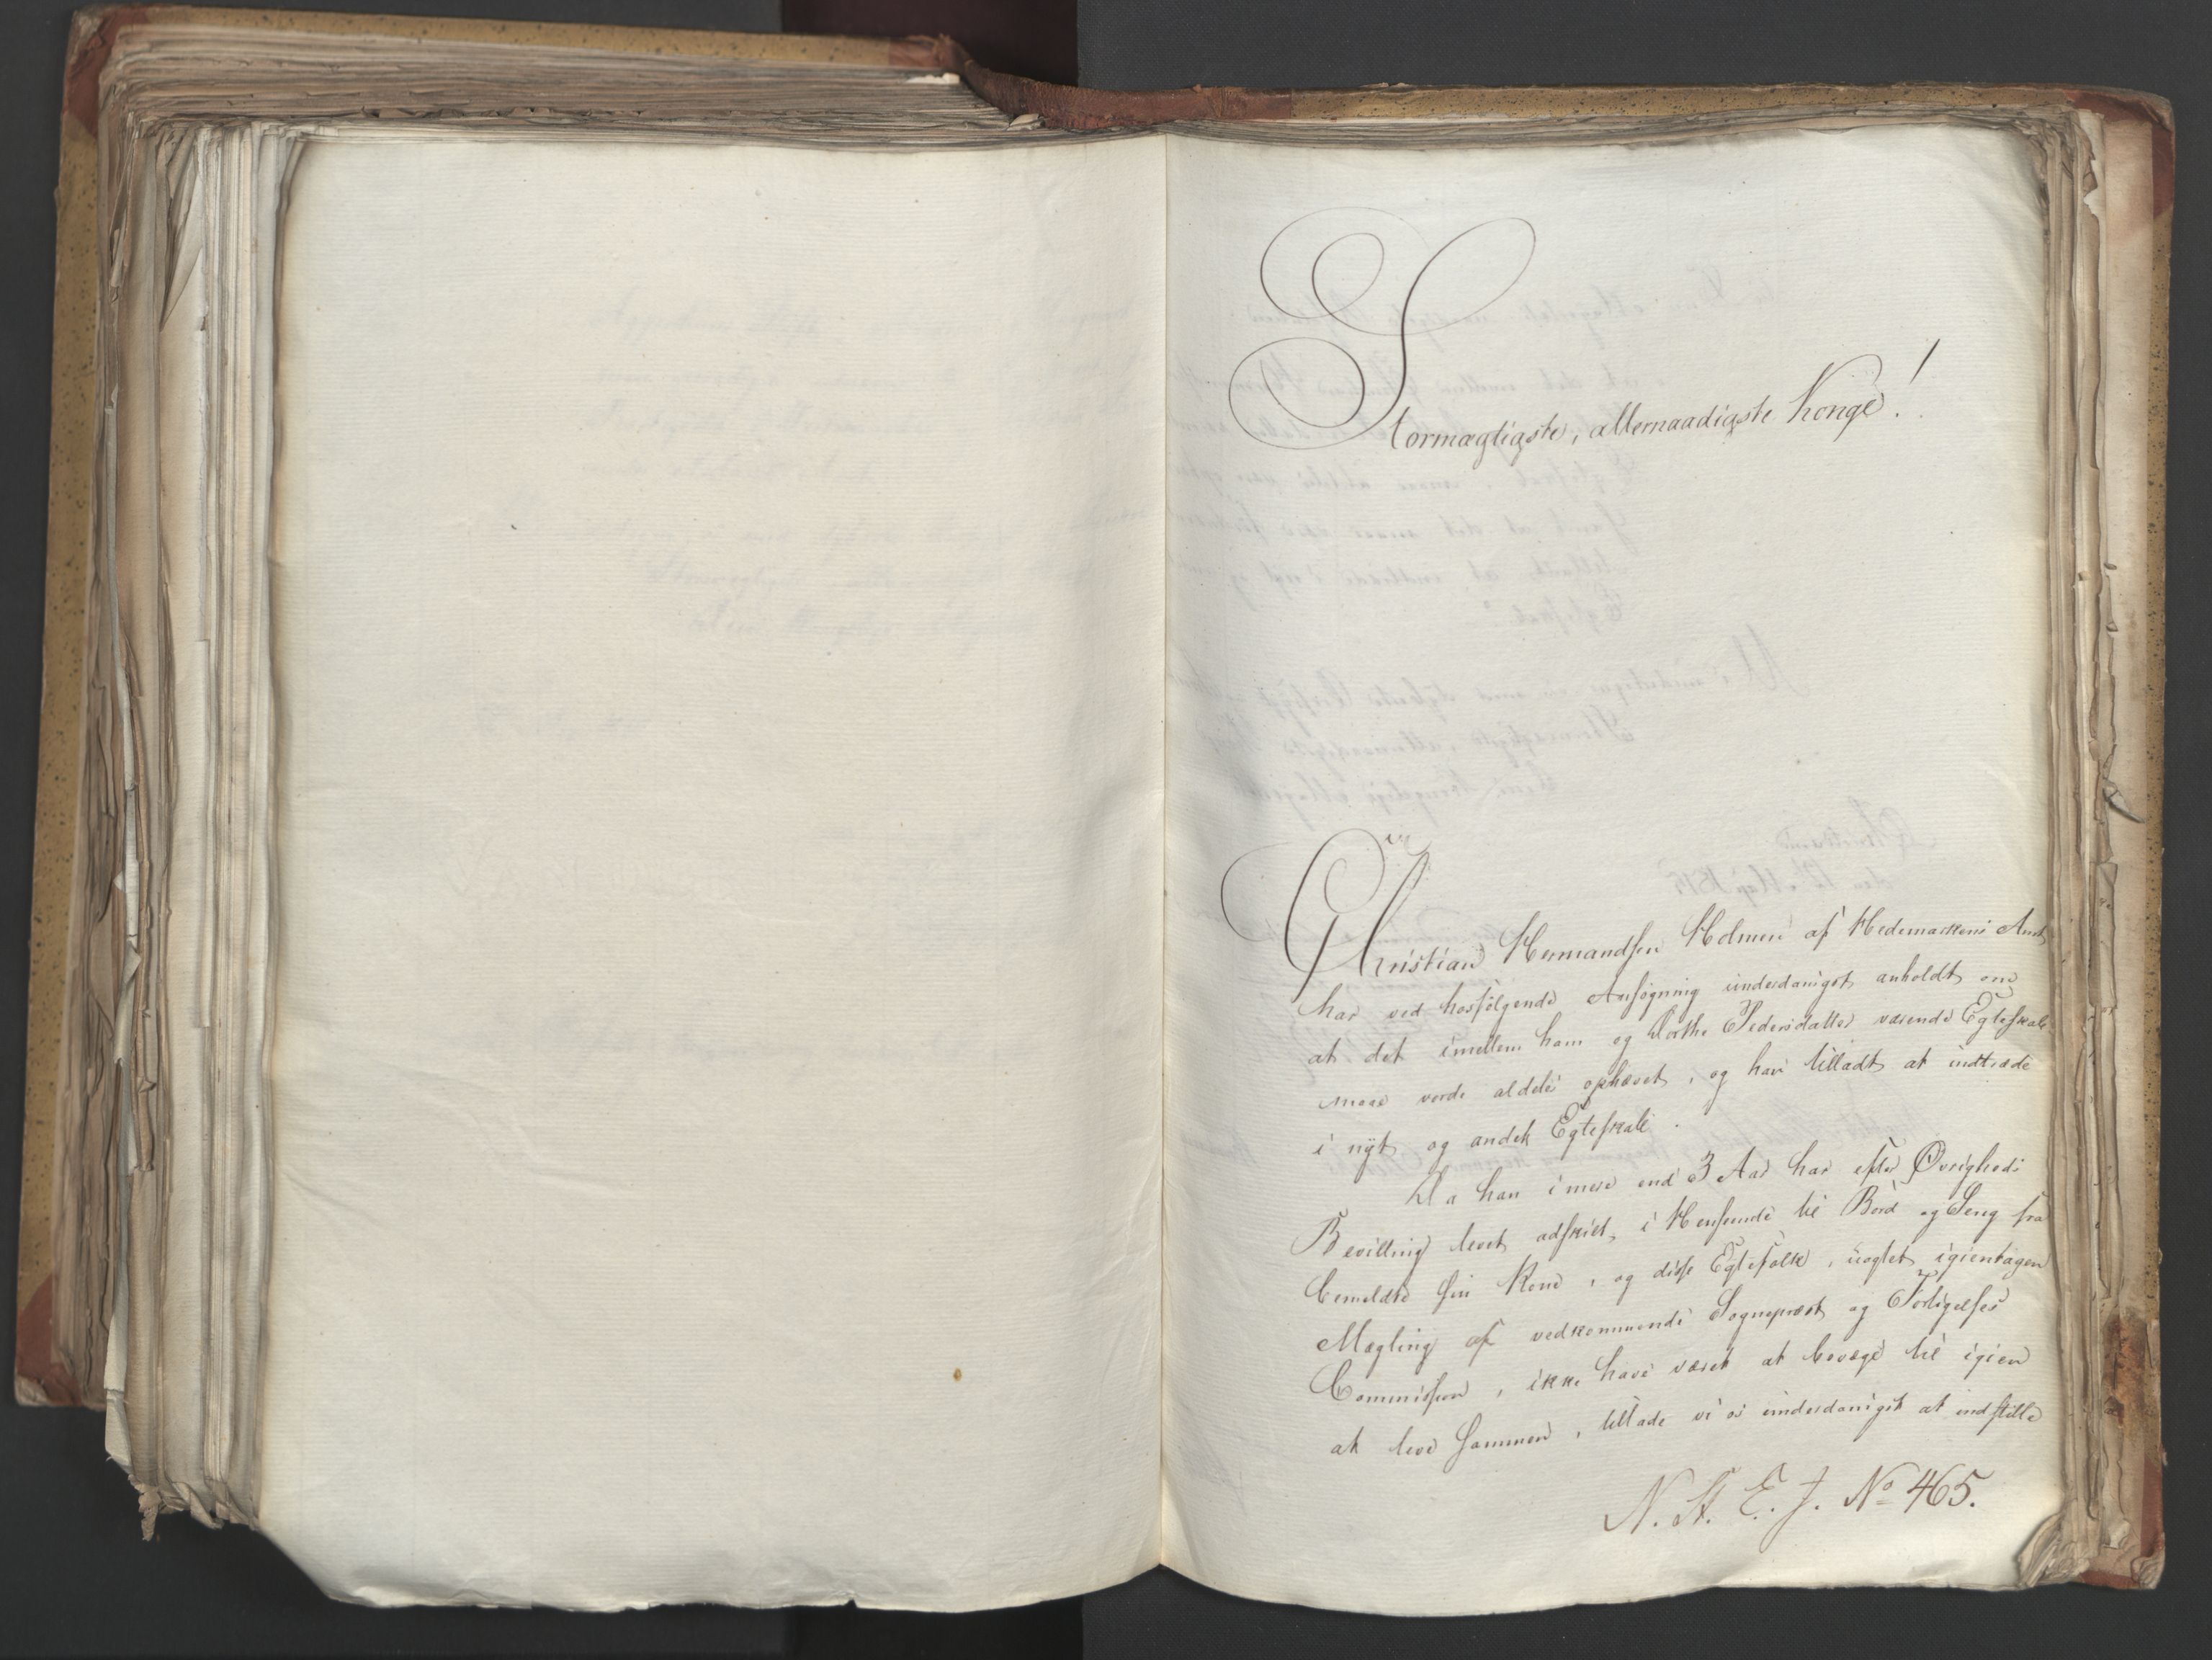 Stormægtigste, allernaadigste Konge!
Christian Hermandsen Holmen af Hedemarkens Amt
har ved hosfølgende Ansøgning underdanigst anholdt om
at det imellem ham og Dorthe Pedersdatter værende Egteskab
maae vorde aldeles ophævet, og han tilladt at indtræde
i nÿt og andet Egteskab.
Da han i mere end 3 Aar har efter Øvrigheds
Bevilling levet adskilt, i Henseende til Bord og Seng fra
bemeldte sin Kone, og disse Egtefolk, uagtet igientagen
Mægling af vedkommende Sognepræst og Forligelses
Commission, ikke have været at bevæge til igien
at leve sammen, tillade vi os underdanigst at indstille
N. St. E. J. No 465.